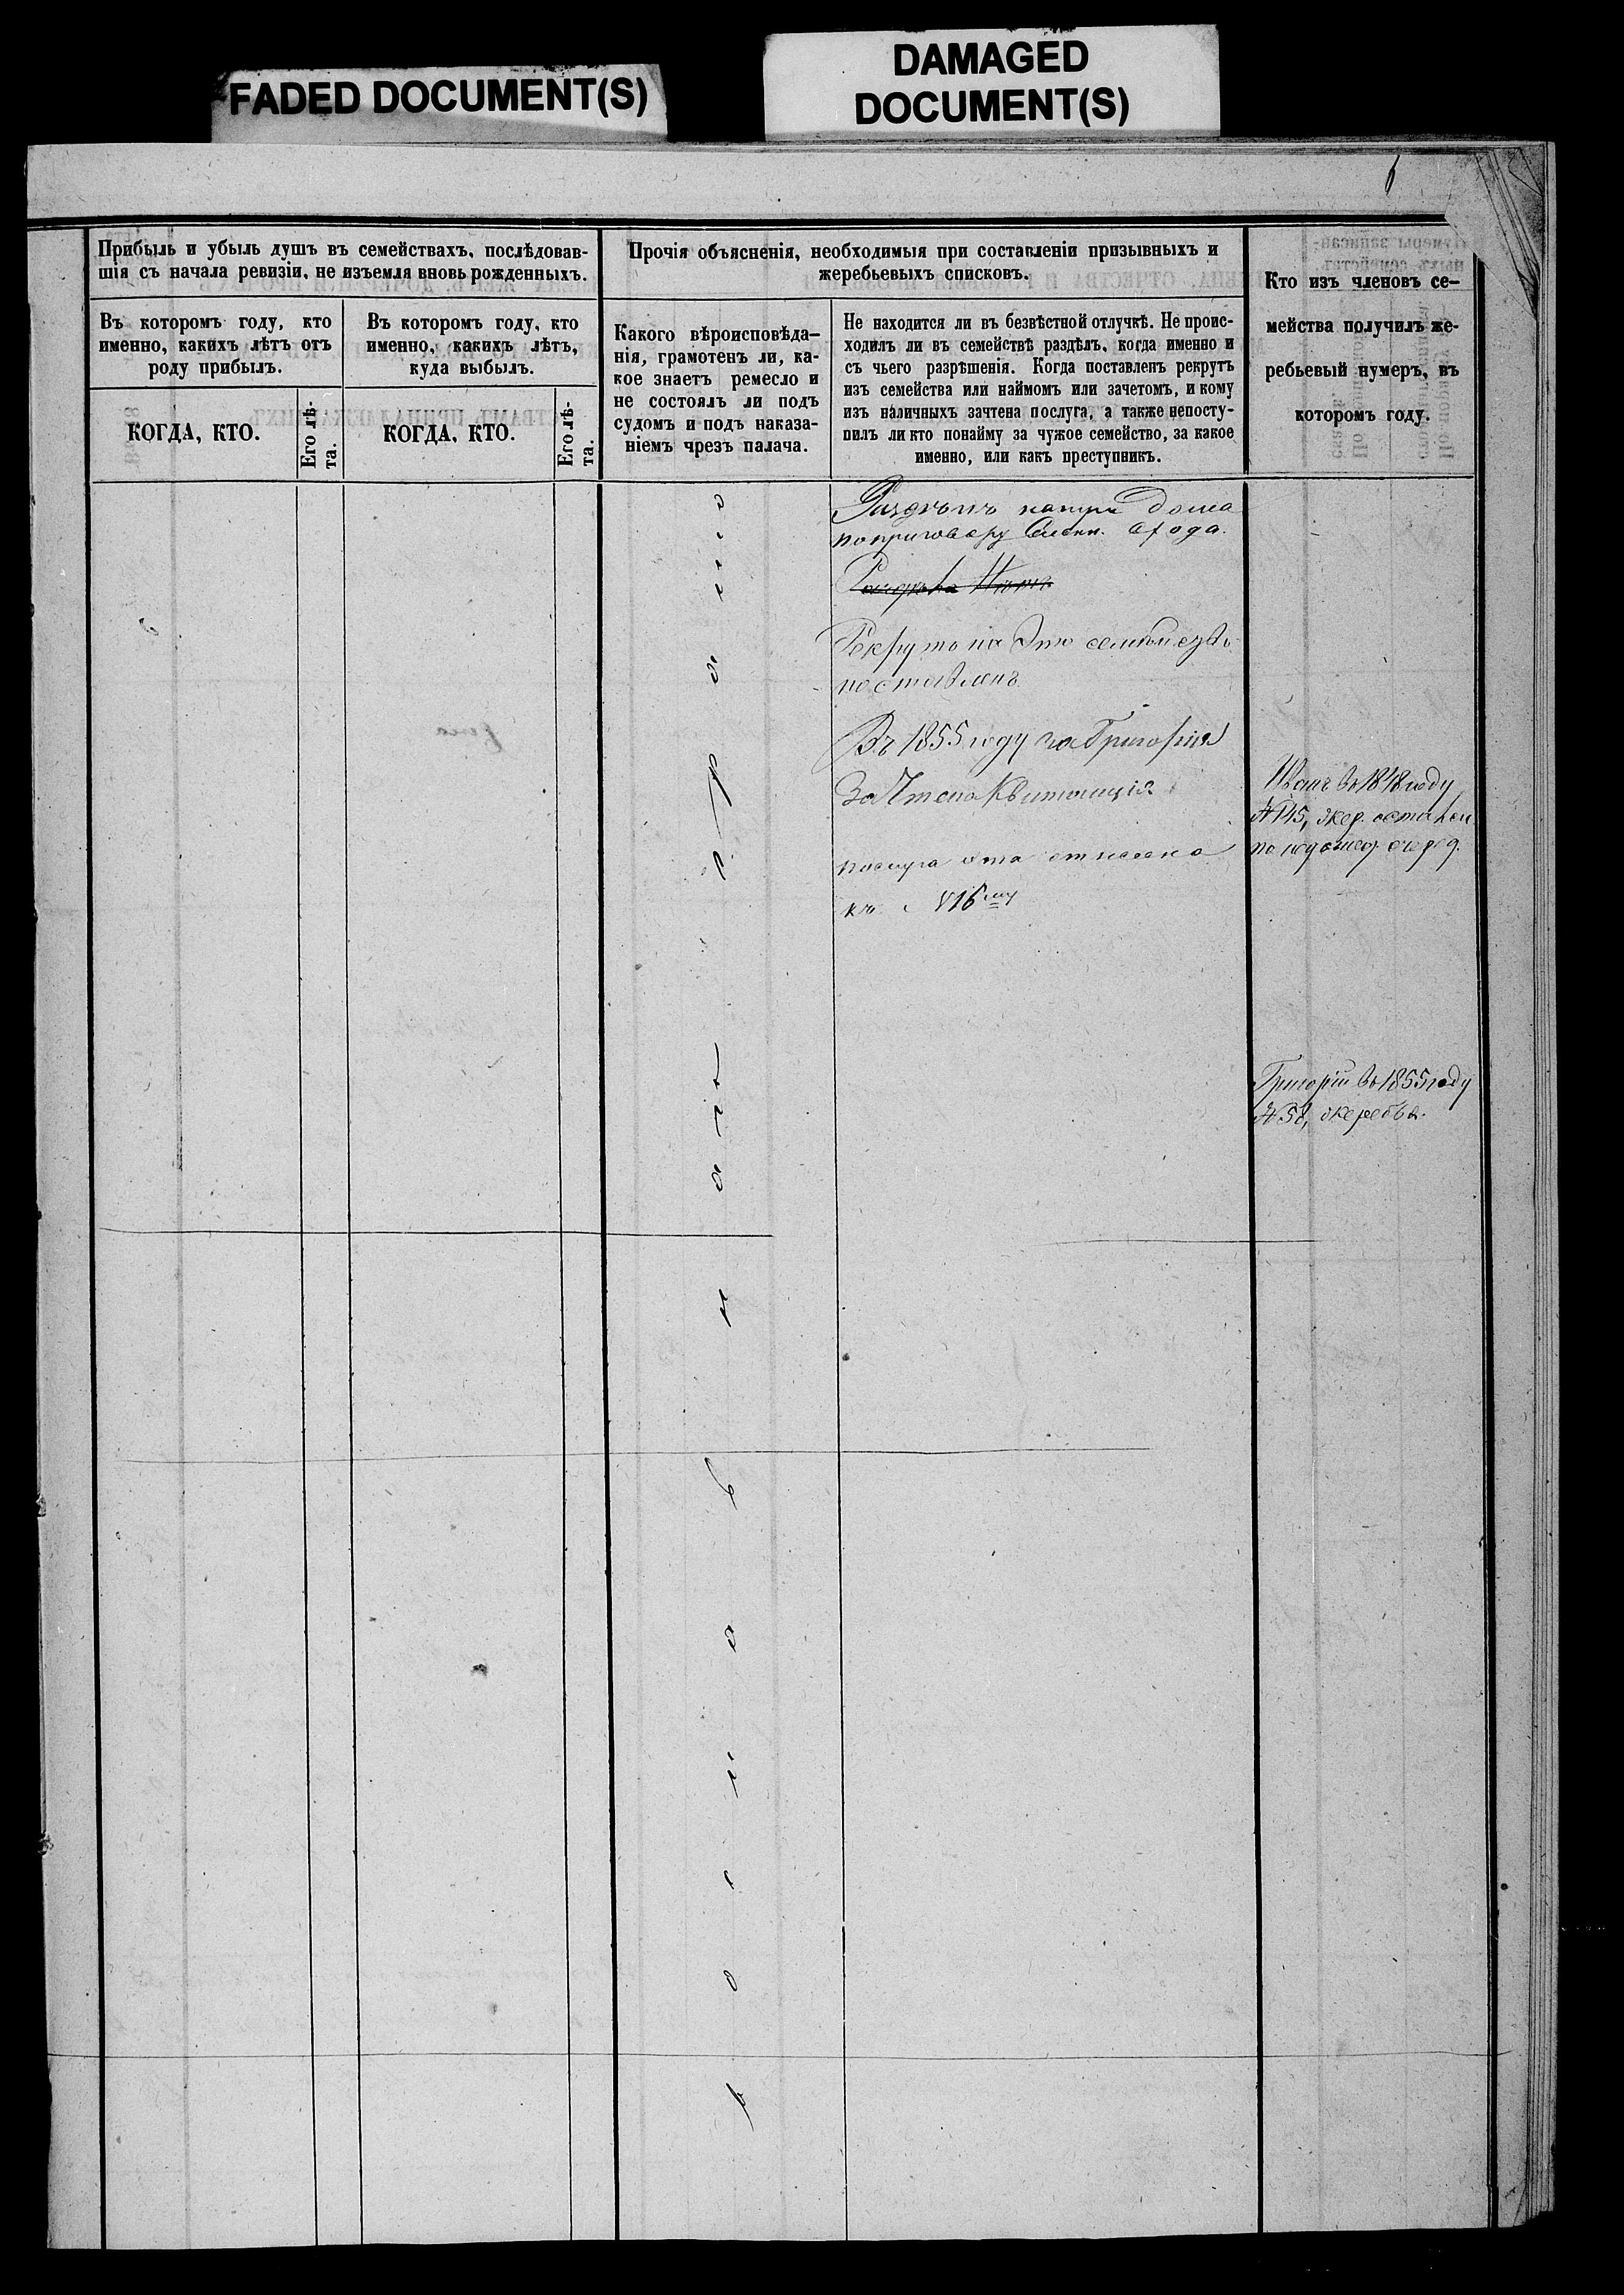 FADED DOCUMENT(S)
DAMAGED
DOCUMENT(S)
6
Прибыль и убыль душъ въ семействахъ, послѣдовав-
шія съ начала ревизіи, не изъемля вновь рожденныхъ.
Въ которомъ году, кто
именно, какихъ лѣтъ отъ
роду прибылъ.
КОГДА, КТО.
Его лѣ-
та.
Въ которомъ году, кто
именно, какихъ лѣтъ,
куда выбылъ.
КОГДА, КТО.
Его лѣ-
та.
Прочія объясненія, необходимыя при составленіи призывныхъ и
жеребьевыхъ списковъ.
Какого вѣроисповѣда-
нія, грамотенъ ли, ка-
кое знаетъ ремесло и
не состоялъ ли подъ
судомъ и подъ наказа-
ніемъ чрезъ палача.
Не находится ли въ безвѣстной отлучкѣ. Не проис-
ходилъ ли въ семействѣ раздѣлъ, когда именно и
съ чьего разрѣшенія. Когда поставленъ рекрутъ
изъ семейства или наймомъ или зачетомъ, и кому
изъ наличныхъ зачтена послуга, а также непосту-
пилъ ли кто понайму за чужое семейство, за какое
именно, или какъ преступникъ.
Кто изъ членовъ се-
мейства получилъ же-
ребьевый нумеръ, въ
которомъ году.
дома
поприговору схода.
Рекрут
поставленъ
Въ 1855 году за Григорія
Зачтена Квитанція
послуга эта отнесена
къ № 16му
Иванъ въ 1848 году
№ 145, жер.
Григорій въ 1855 году
№ 58, жеребья